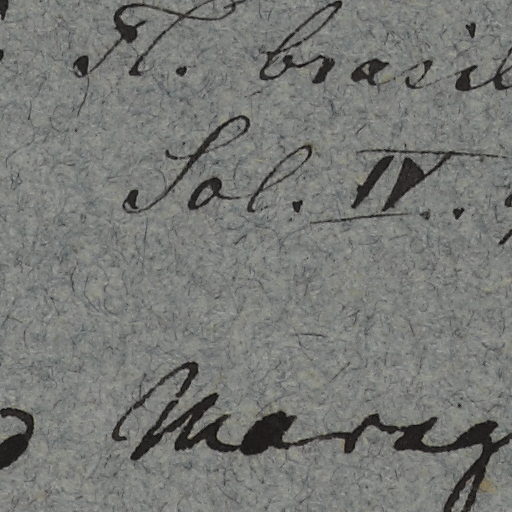 Fl. brasil
Sol. IV.
Marag